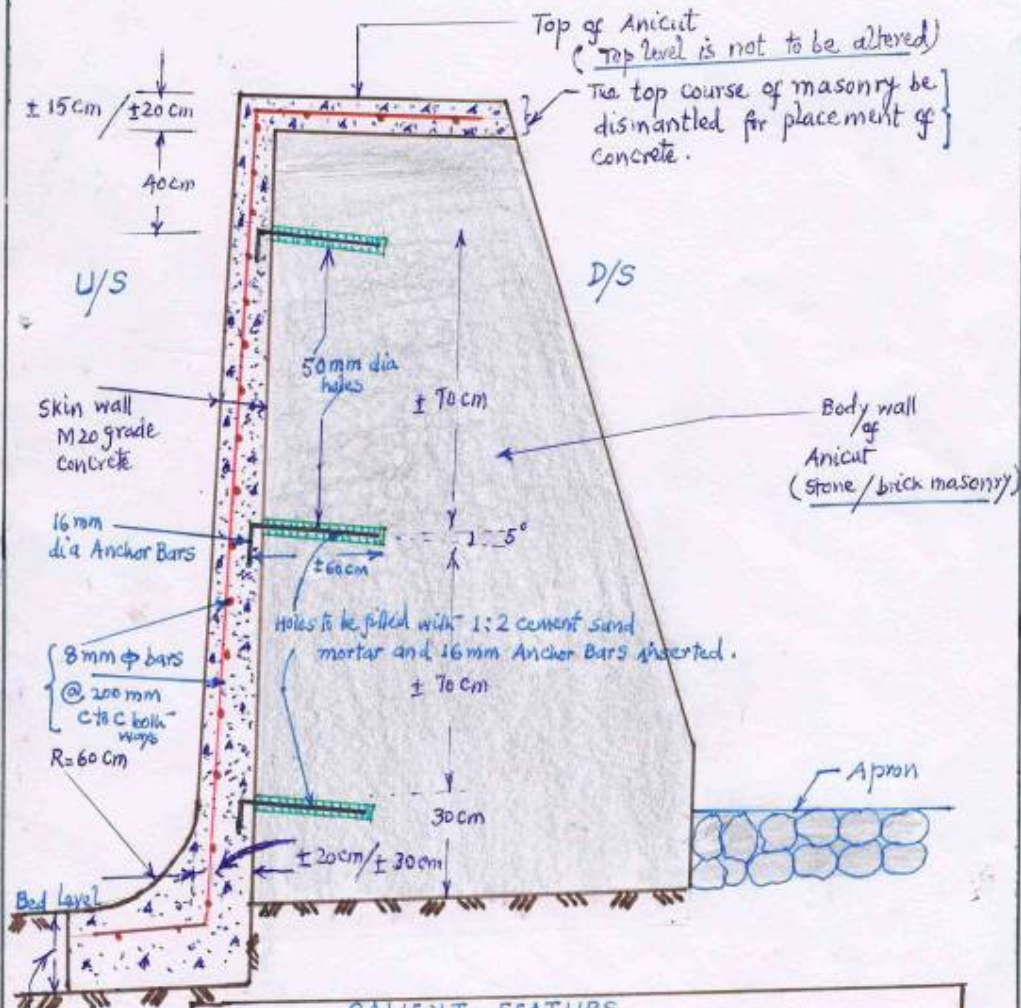 Top of Anicut
( Top level is not to be altered)
± 15cm / ±20cm
The top course of masonry be
dismantled for placement of
concrete.
40cm
U/S
D/S
50mm dia
holes
± 70cm
Skin wall
M20 grade
Concrete
Body wall
of
Anicut
(Stone/brick masonry)
16mm
dia Anchor Bars
5°
±60cm
Holes to be filled with 1:2 cement sand
mortar and 16mm Anchor Bars inserted.
± 70cm
8mm φ bars
@ 200mm
C to C both
ways
R=60cm
Apron
30cm
±20cm/±30cm
Bed Level
SALIENT FEATURE